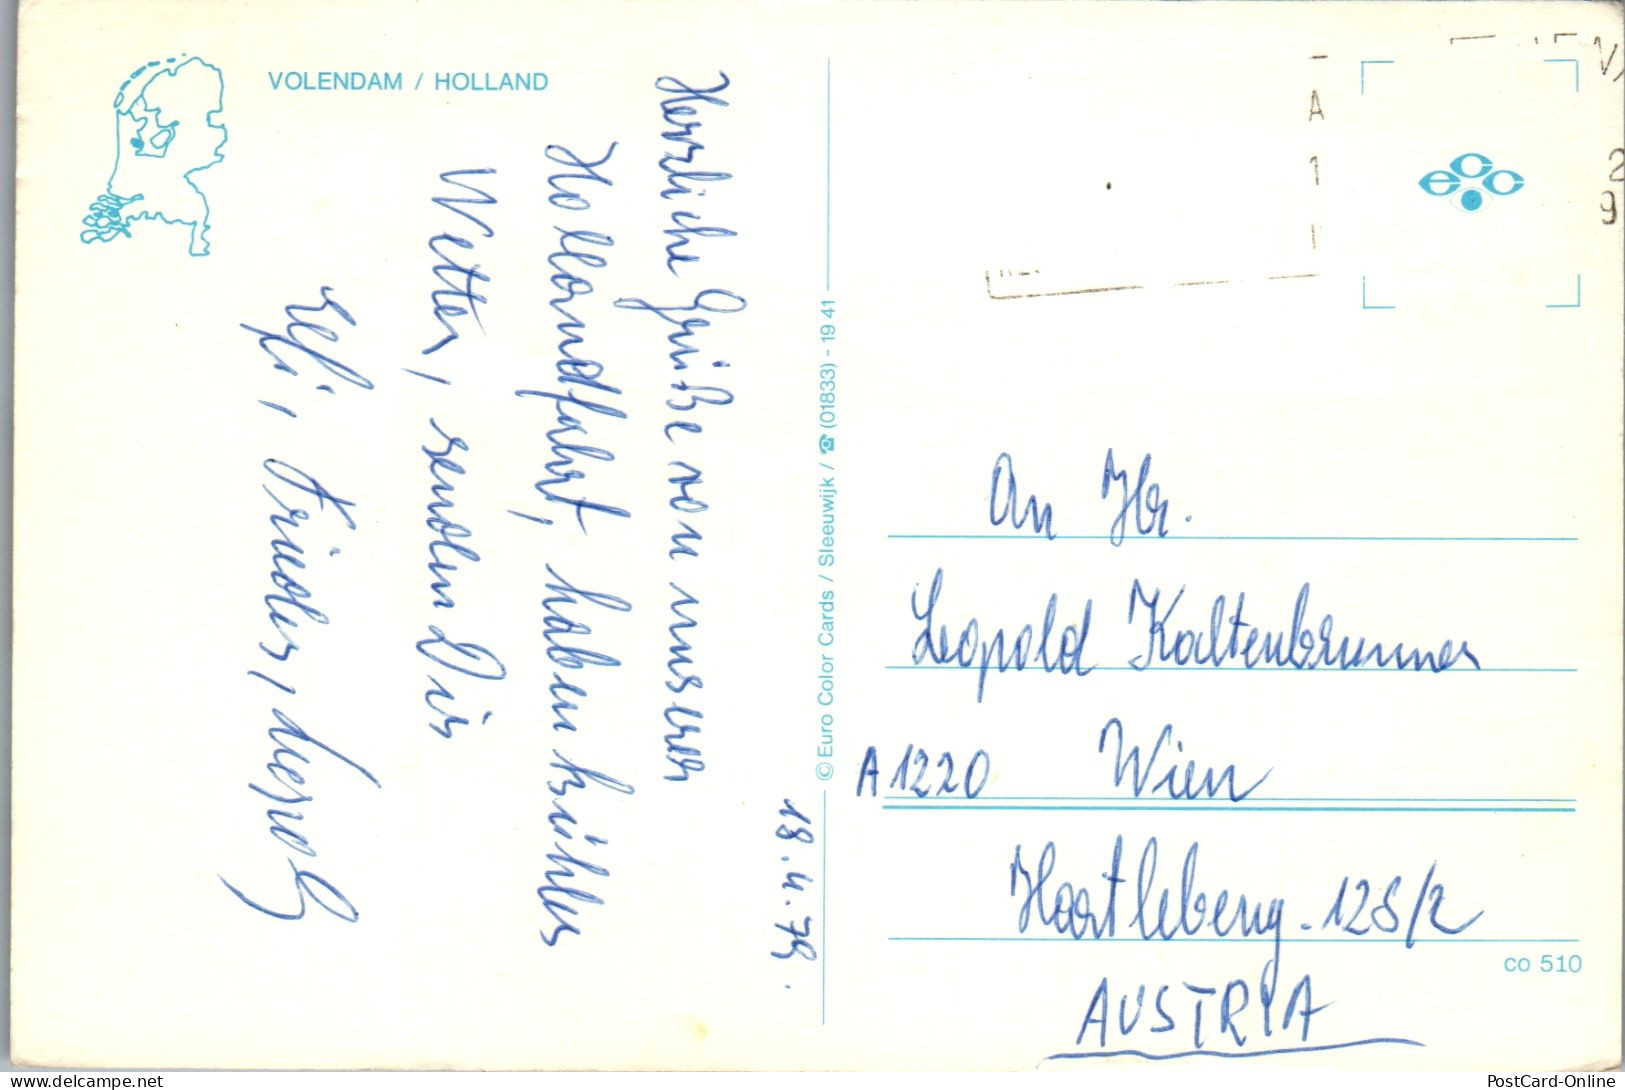 VOLENDAM / HOLLAND
18.4.79.
Herrliche Grüße von unserer
Hollandfahrt, haben kühles
Wetter, senden Dir
Effi, Frieder, Leopold
© Euro Color Cards / Sleeuwijk / ☎ (01833) - 19 41
A
1
2
9
ecc
An Hr.
Leopold Kaltenbrunner
A 1220 Wien
Hartlebeng. 128/2
AUSTRIA
co 510
PostCard-Online